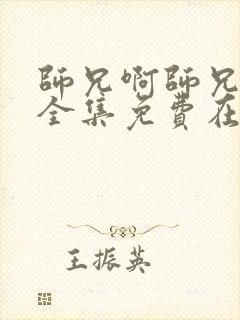 師兄啊師兄
全集免費在
王振英